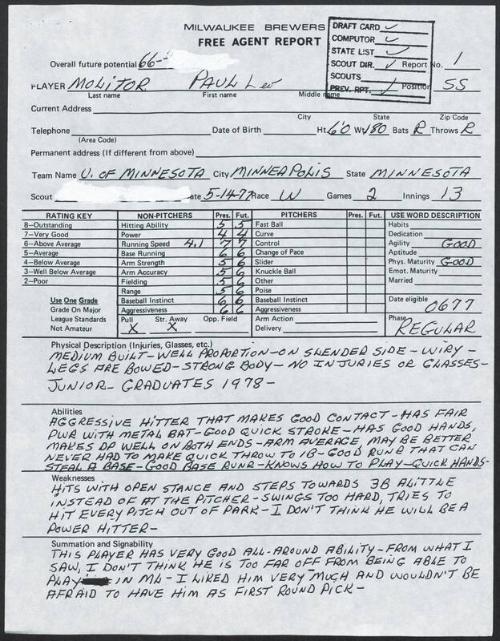 MILWAUKEE BREWERS
FREE AGENT REPORT
DRAFT CARD ✓
COMPUTOR ✓
STATE LIST ✓
SCOUT DIR. ✓
SCOUTS
PREV. RPT. ✓
Overall future potential 66-
Report No. 1
PLAYER MOLITOR PAUL Leo Position SS
Last name First name Middle name
Current Address
City State
Telephone Date of Birth Ht. 6'0 Wt. 180 Bats R Throws R
(Area Code)
Permanent address (If different from above)
Team Name U. OF MINNESOTA City MINNEAPOLIS State MINNESOTA
Scout Date 5-14-77 Race W Games 2 Innings 13
RATING KEY NON-PITCHERS Pres. Fut. PITCHERS Pres. Fut. USE WORD DESCRIPTION
8–Outstanding Hitting Ability 5 5 Fast Ball Habits
7–Very Good Power 4 4 Curve Dedication
6–Above Average Running Speed 4.1 7 7 Control Agility GOOD
5–Average Base Running 6 6 Change of Pace Aptitude
4–Below Average Arm Strength 5 5 Slider Phys. Maturity GOOD
3–Well Below Average Arm Accuracy 5 6 Knuckle Ball Emot. Maturity
2–Poor Fielding 5 6 Other Married
Range 5 6 Poise
Use One Grade Baseball Instinct 6 6 Baseball Instinct Date eligible
Grade On Major Aggressiveness 6 6 Aggressiveness 0677
League Standards Pull Str. Away Opp. Field Arm Action Phase
Not Amateur X X Delivery REGULAR
Physical Description (Injuries, Glasses, etc.)
MEDIUM BUILT-WELL PROPORTION-ON SLENDER SIDE-WIRY-
LEGS ARE BOWED-STRONG BODY-NO INJURIES OR GLASSES-
JUNIOR-GRADUATES 1978-
Abilities
AGGRESSIVE HITTER THAT MAKES GOOD CONTACT-HAS FAIR
PWR WITH METAL BAT-GOOD QUICK STROKE-HAS GOOD HANDS,
MAKES DP WELL ON BOTH ENDS-ARM AVERAGE, MAY BE BETTER
NEVER HAD TO MAKE QUICK THROW TO 1B-GOOD RUNR THAT CAN
STEAL A BASE-GOOD BASE RUNR-KNOWS HOW TO PLAY-QUICK HANDS-
Weaknesses
HITS WITH OPEN STANCE AND STEPS TOWARDS 3B A LITTLE
INSTEAD OF AT THE PITCHER-SWINGS TOO HARD, TRIES TO
HIT EVERY PITCH OUT OF PARK-I DON'T THINK HE WILL BE A
POWER HITTER-
Summation and Signability
THIS PLAYER HAS VERY GOOD ALL-AROUND ABILITY-FROM WHAT I
SAW, I DON'T THINK HE IS TOO FAR OFF FROM BEING ABLE TO
PLAY IN ML-I LIKED HIM VERY MUCH AND WOULDN'T BE
AFRAID TO HAVE HIM AS FIRST ROUND PICK-